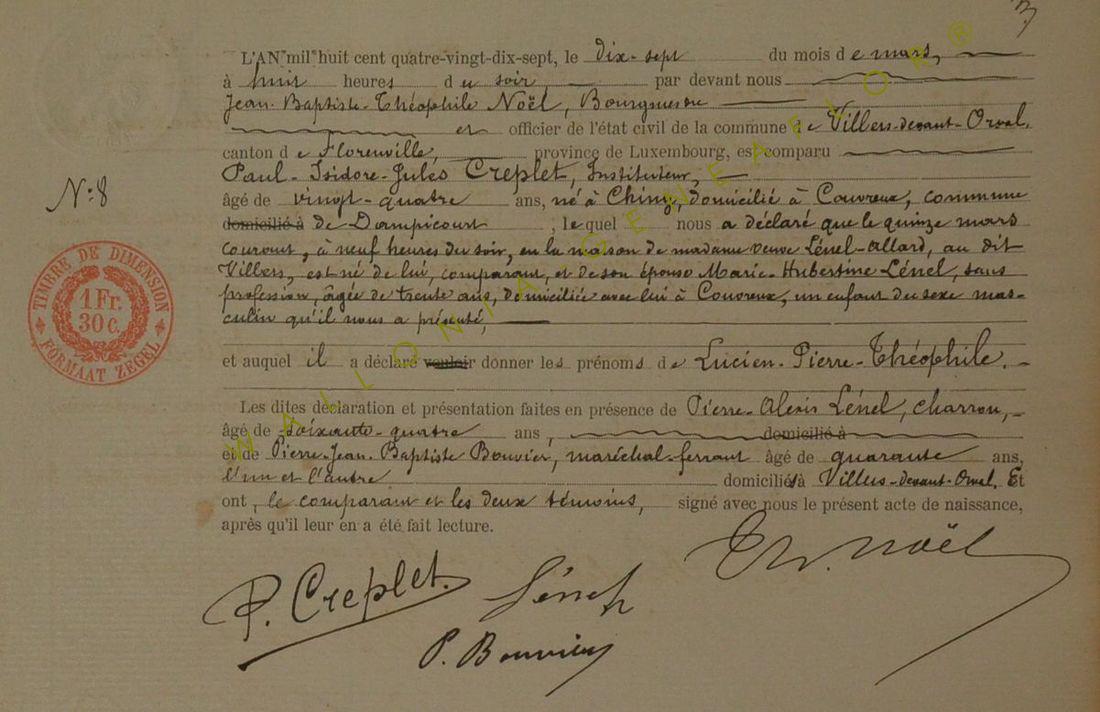 L'AN mil huit cent quatre-vingt-dix-sept, le dix-sept du mois de mars,
à huit heures du soir, par devant nous
Jean-Baptiste-Théophile Noël, Bourgmestre
et officier de l'état civil de la commune de Villers-devant-Orval,
canton de Florenville, province de Luxembourg, est comparu
Paul-Isidore-Jules Creplet, Instituteur,
N:8
âgé de vingt-quatre ans, né à Chiny, domicilié à Couvreux, commune
domicilié à de Dampicourt, lequel nous a déclaré que le quinze mars
courant, à neuf heures du soir, en la maison de madame veuve Lénel-Allard, au dit
Villers, est né de lui, comparant, et de son épouse Marie-Hubertine Lénel, sans
profession, âgée de trente ans, domiciliée avec lui à Couvreux, un enfant du sexe mas-
culin qu'il nous a présenté,
TIMBRE DE DIMENSION
1 Fr.
30 c.
FORMAAT ZEGEL
et auquel il a déclaré vouloir donner les prénoms de Lucien-Pierre-Théophile.
Les dites déclaration et présentation faites en présence de Pierre-Alexis Lénel, charron,
âgé de soixante-quatre ans, domicilié à
et de Pierre-Jean-Baptiste Bouvier, maréchal-ferrant âgé de quarante ans,
l'un et l'autre domiciliés à Villers-devant-Orval, Et
ont, le comparant et les deux témoins, signé avec nous le présent acte de naissance,
après qu'il leur en a été fait lecture.
Th. Noël
P. Creplet.
Lénel
P. Bouvier
WALLONIA GENEALOR ®